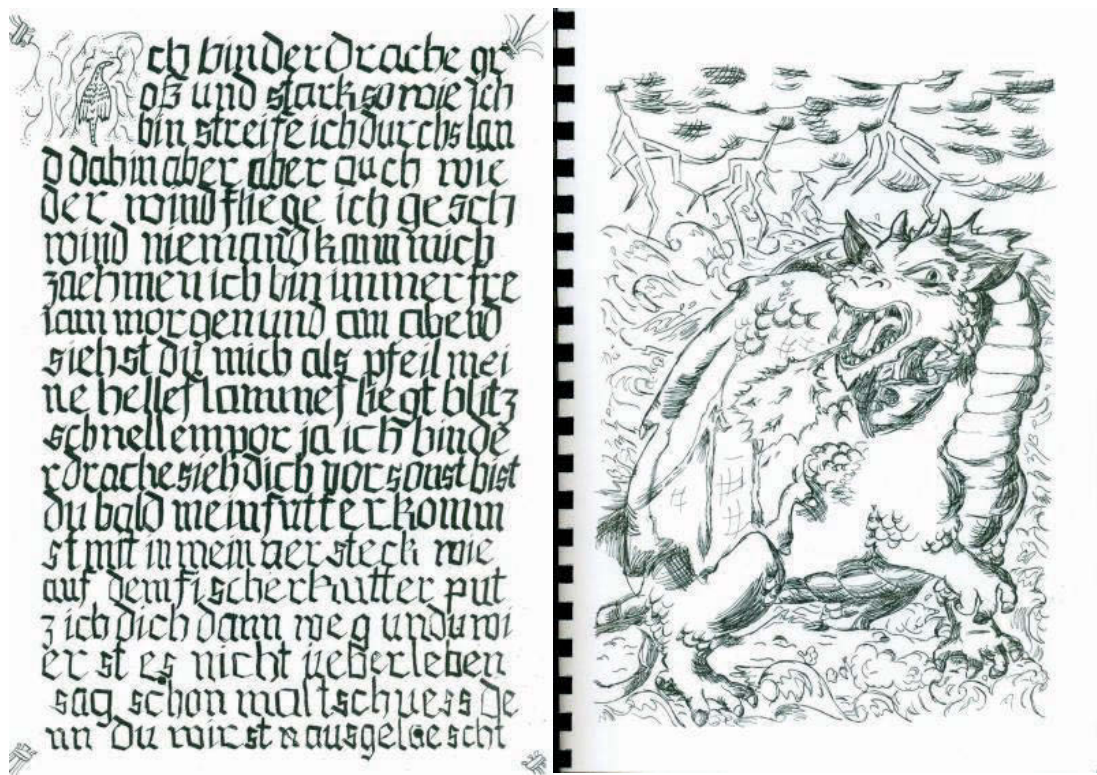 Ich bin der Drache gr
oß und stark so wie ich
bin streife ich durchs lan
d dahin aber aber auch wie
der wind fliege ich gesch
wind niemand kann mich
zaehmen ich bin immer fre
i am morgen und am abend
siehst du mich als pfeil mei
ne helle flamme fliegt blitz
schnell empor ja ich bin de
r drache sieh dich vor sonst bist
du bald mein futter komm
st mit in mein versteck wie
auf dem fischerkutter put
z ich dich dann weg und u wi
er st es nicht ueberleben
sag schon mal tschuess de
nn du wirst ausgeloescht